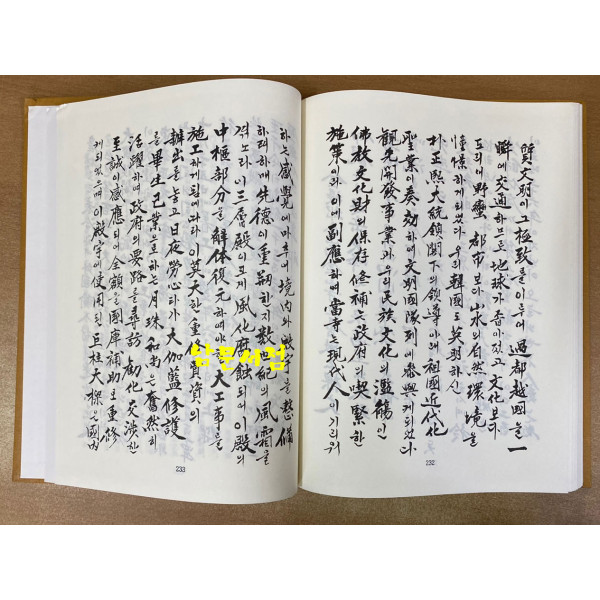 質文明이 그 極致를 이루어 過都越國을 一
瞬에 交通하므로 地球가 좁아졌고 文化보다
도리어 野蠻 都市보다 山水의 自然環境을
憧憬하게 되었다 우리 韓國도 英明하신
朴正熙大統領閣下의 領導아래 祖國近代化
聖業이 奏効하여 文明國隊列에 參與케 되었다
觀光開發事業과 우리 民族文化의 濫觴인
佛教文化財의 保存修補는 政府의 喫緊한
施策이라 이에 副應하여 當寺는 現代人이 기리워
232
하는 感覺에 마추어 境內와 을 整備
하려하매 先德이 重剏한지 數世紀의 風霜을
격노라 이 三層殿이 크게 風化腐蝕되어 이 殿의
中樞部分을 解体復元하여야 大工事를
施工하게 됨에 따라 이 莫大한 重 資의
辦出을 놓고 日夜勞心타가 大伽藍修護
를 畢生己業으로 하는 月珠和尙은 奮然히
活躍하여 政府의 要路를 尋訪 劬化交渉한
至誠이 感應되어 全額을 國庫補助로 重修
케 되었으매 이 殿宇에 使用된 巨柱大樑은 國內
233
남문서점